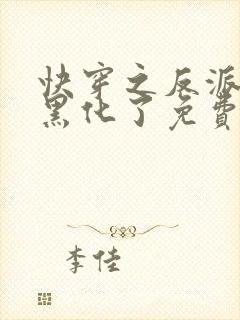 快穿之反派
黑化了免费
李佳